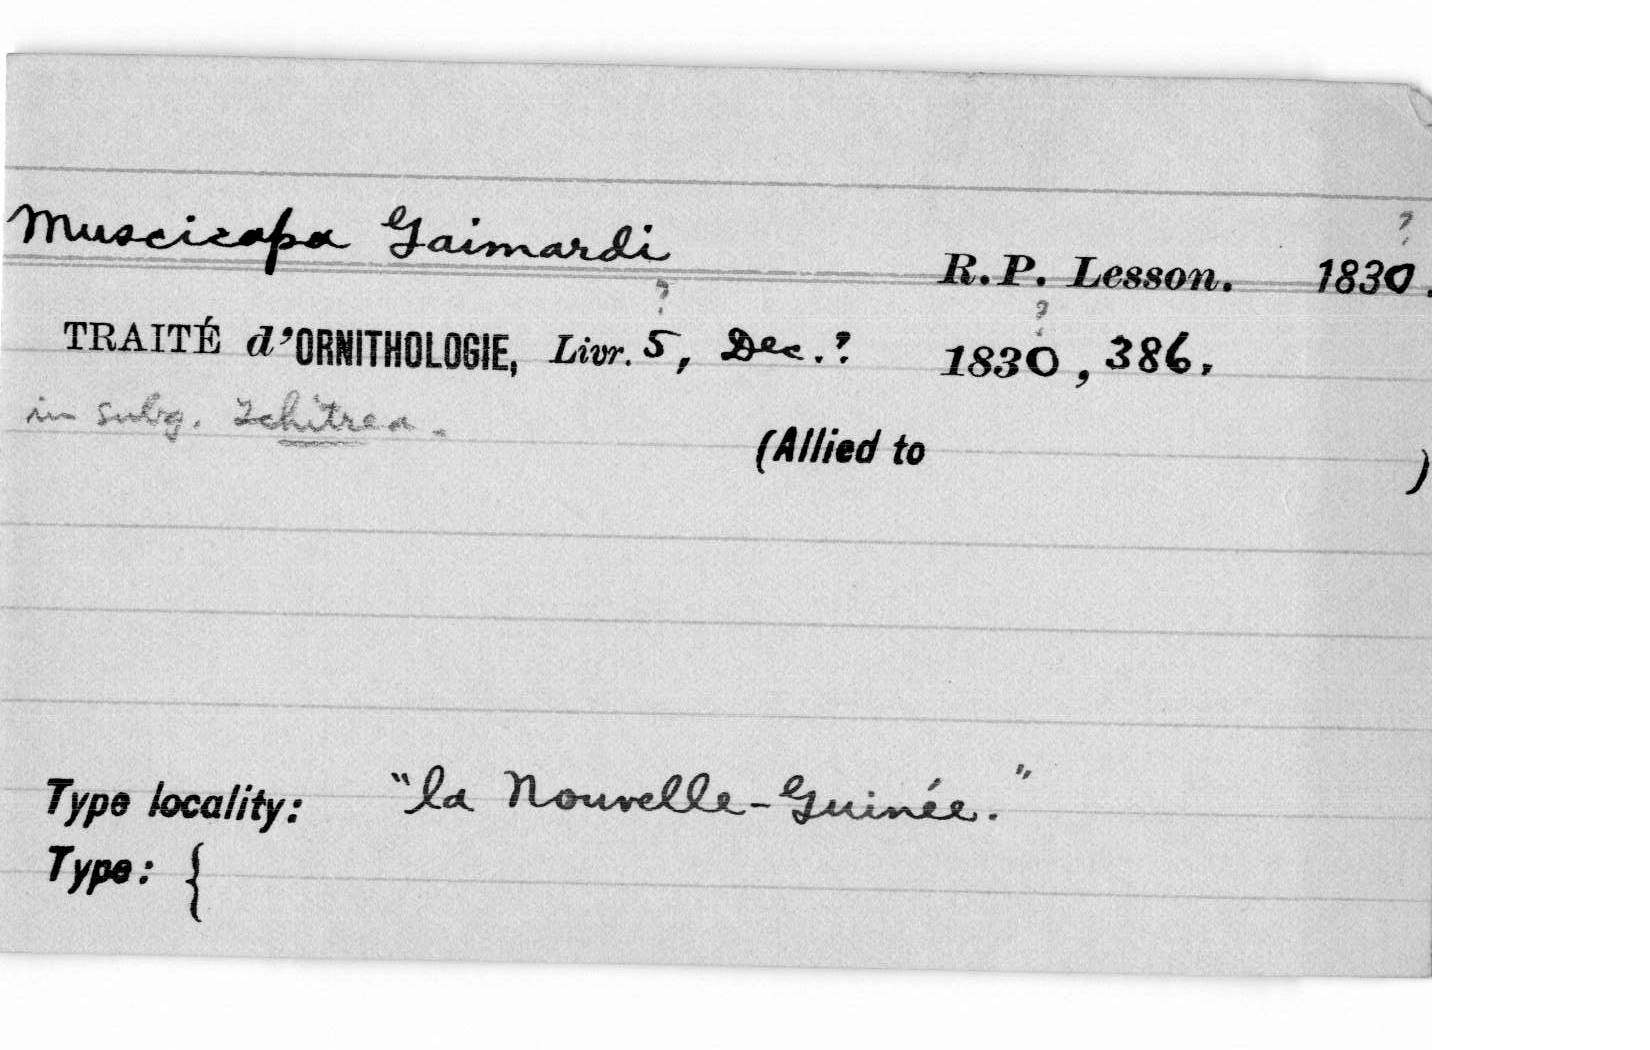 Muscicapa Gaimardi
R.P. Lesson. 1830?.
TRAITÉ d'ORNITHOLOGIE, Livr. 5?, Dec.? 1830?, 386.
in subg. Tchitrea.
(Allied to )
Type locality: "la Nouvelle-Guinée."
Type: {